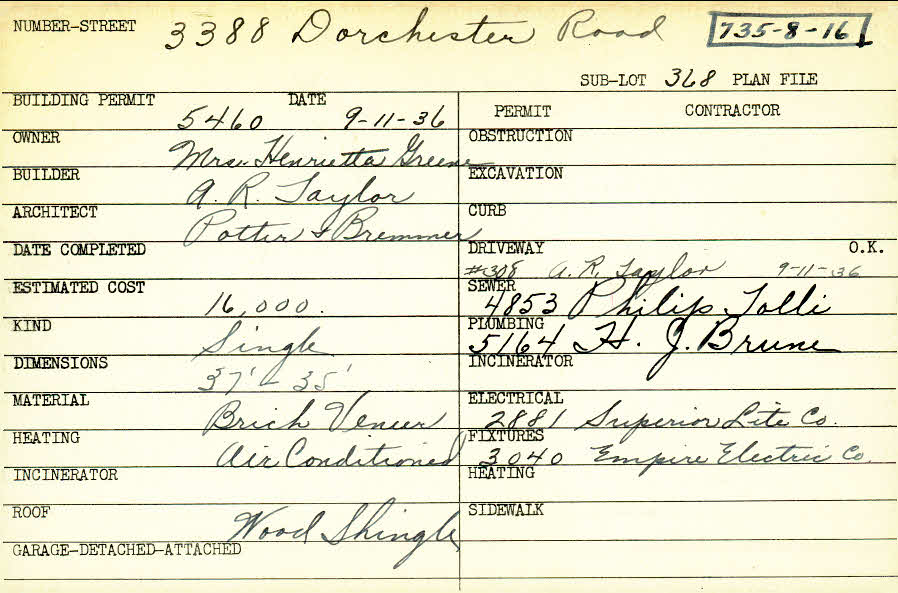 NUMBER-STREET 3388 Dorchester Road 735-8-16
SUB-LOT 368 PLAN FILE
BUILDING PERMIT 5460 DATE 9-11-36
OWNER Mrs. Henrietta Greene
BUILDER A. R. Taylor
ARCHITECT Potter & Bremmer
DATE COMPLETED
ESTIMATED COST 16,000.
KIND Single
DIMENSIONS 37' - 35'
MATERIAL Brick Veneer
HEATING Air Conditioned
INCINERATOR
ROOF Wood Shingle
GARAGE-DETACHED-ATTACHED
PERMIT CONTRACTOR
OBSTRUCTION
EXCAVATION
CURB
DRIVEWAY O.K.
#308 A. R. Taylor 9-11-36
SEWER 4853 Philip Tolli
PLUMBING 5164 H. J. Brune
INCINERATOR
ELECTRICAL 2881 Superior Lite Co.
FIXTURES 3040 Empire Electric Co.
HEATING
SIDEWALK